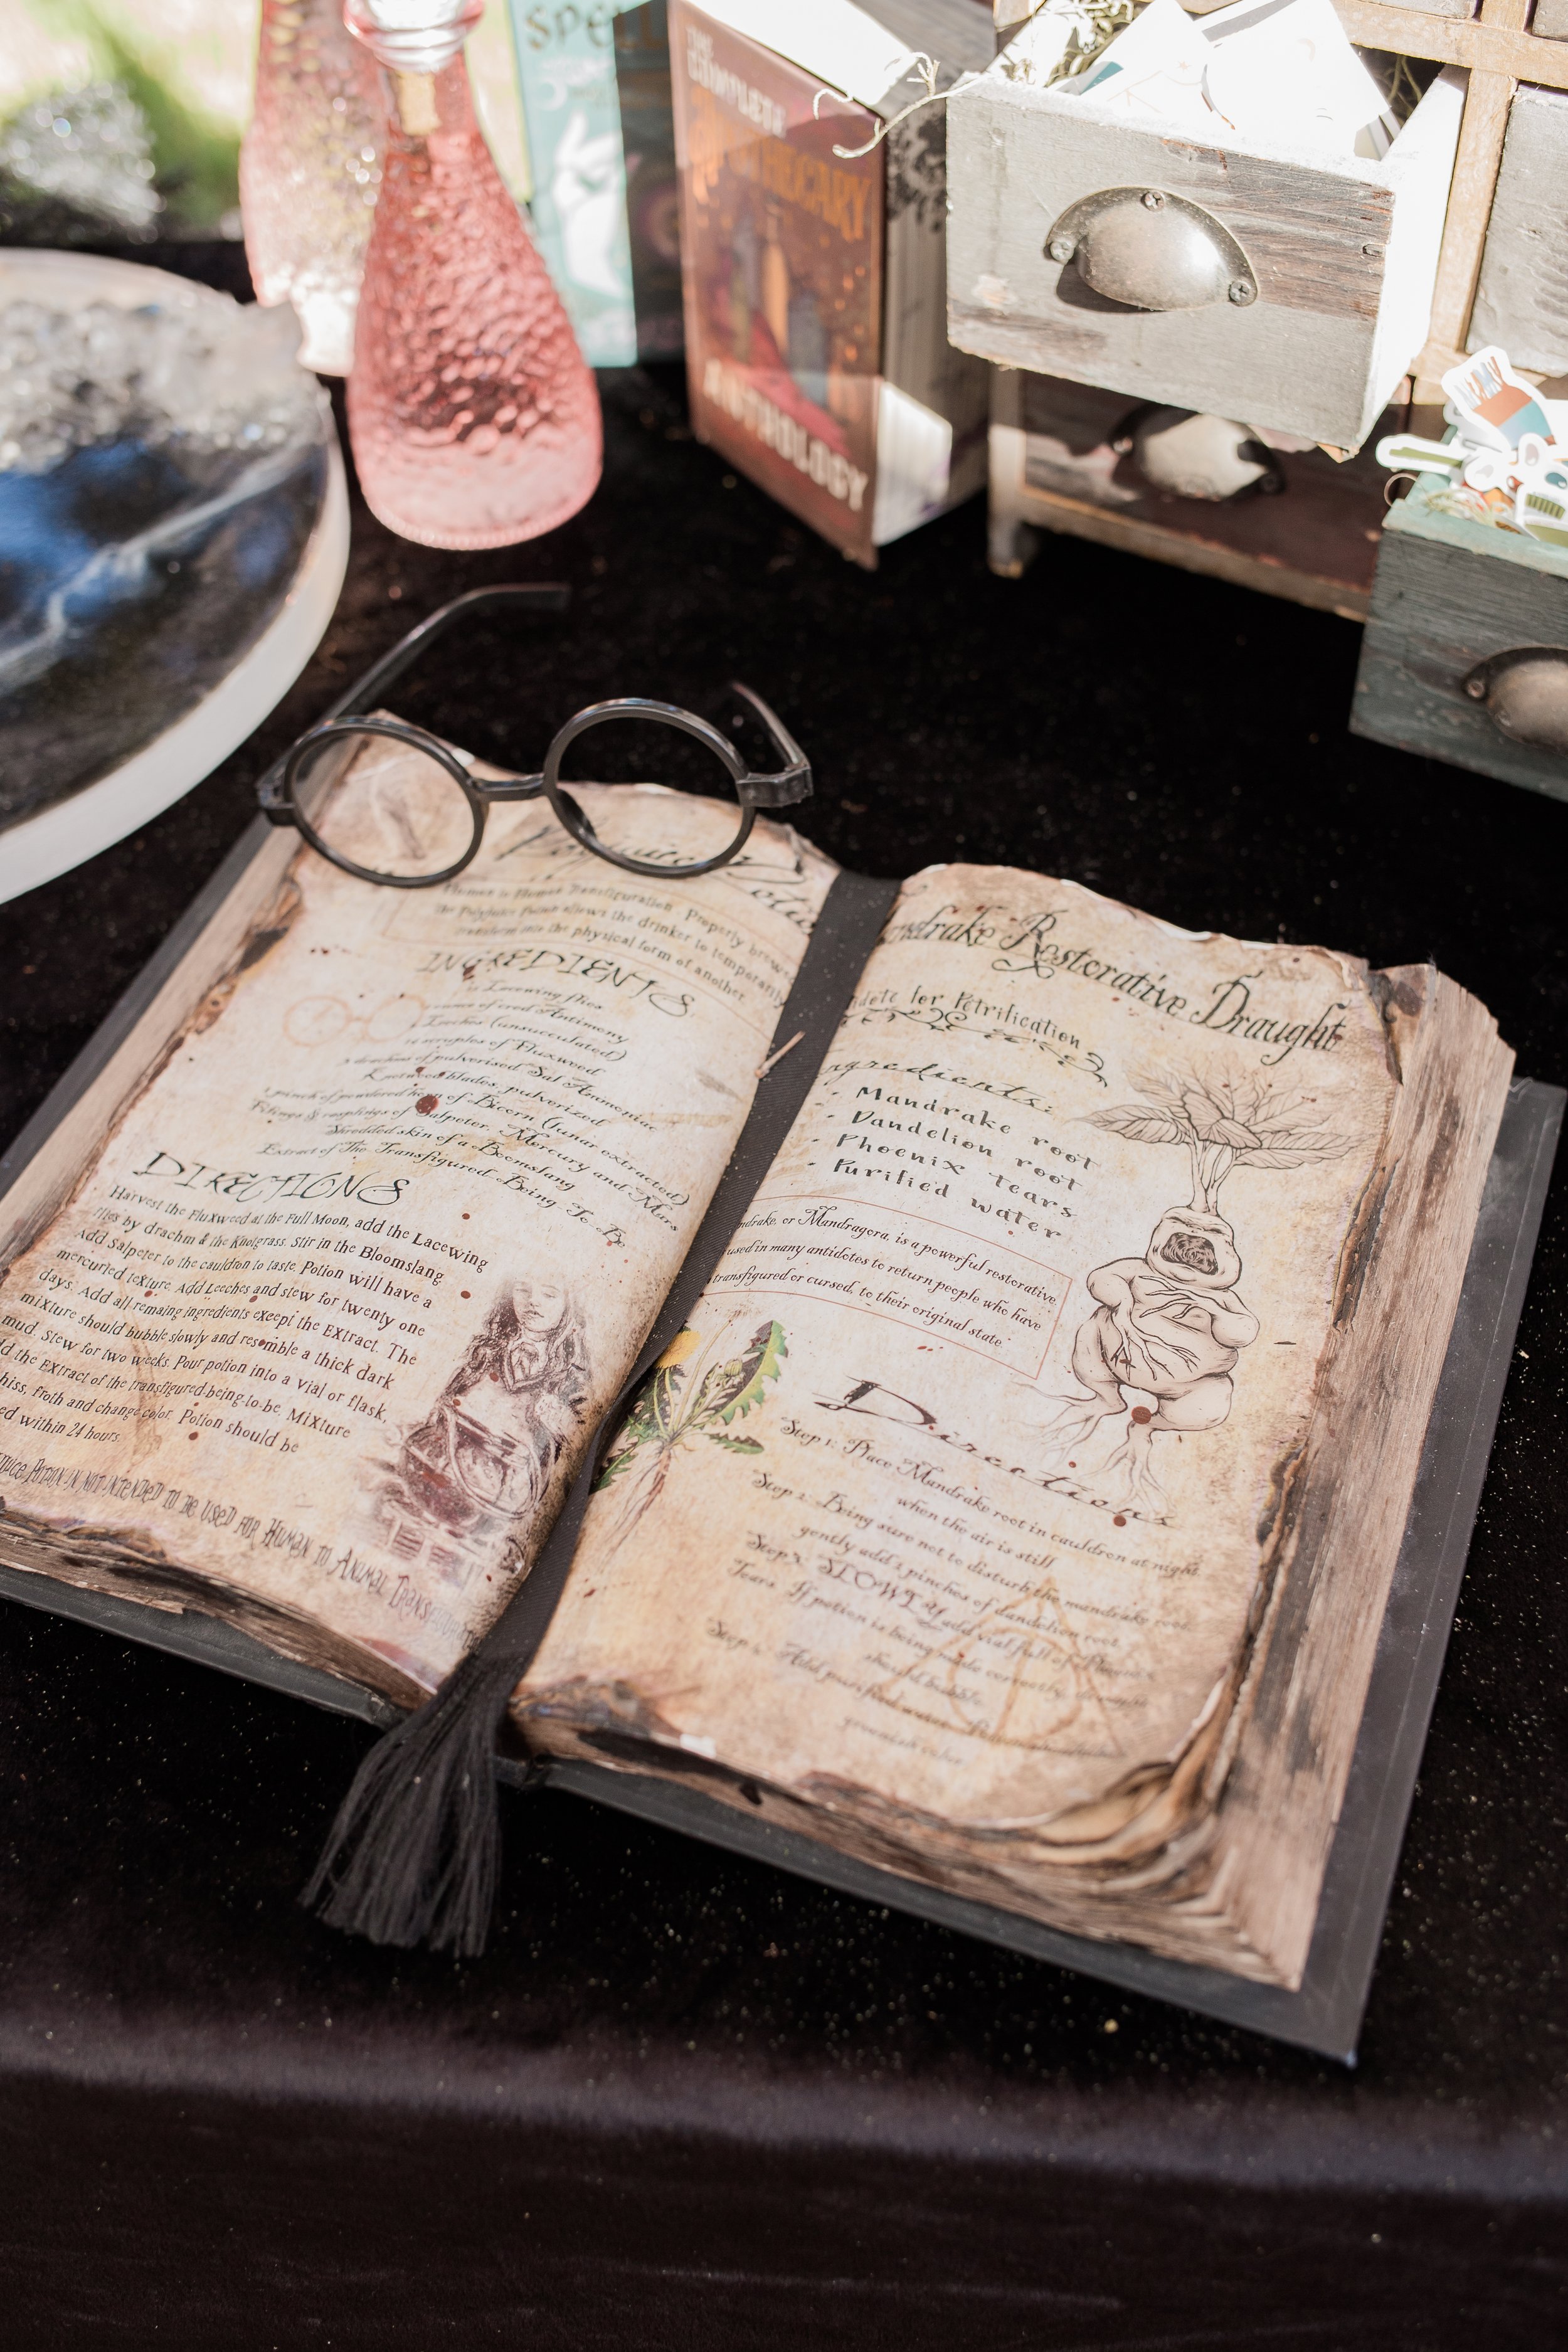 SPELL
THE
COMPLETE
APOTHECARY
ANTHOLOGY
Polyjuice Potion
Human to Human Transfiguration. Properly brewed
the Polyjuice Potion allows the drinker to temporarily
transform into the physical form of another.
INGREDIENTS
Lacewing flies
of crud Antimony
Leeches (unsucculated)
scruples of Fluxweed
drachms of pulverised Sal Ammoniac
Knotweed blades, pulverized
pinch of powdered horn of Bicorn (lunar extracted)
Filings & rasplings of Salpeter, Mercury and Mars
Shredded skin of a Boomslang
Extract of The Transfigured-Being To-Be
DIRECTIONS
Harvest the Fluxweed at the Full Moon, add the Lacewing
flies by drachm & the Knotgrass. Stir in the Bloomslang.
Add Salpeter to the cauldron to taste. Potion will have a
mercuried texture. Add Leeches and stew for twenty one
days. Add all remaing ingredients except the Extract. The
mixture should bubble slowly and resemble a thick dark
mud. Stew for two weeks. Pour potion into a vial or flask,
the Extract of the transfigured being-to-be. Mixture
hiss, froth and change color. Potion should be
ed within 24 hours.
juice Potion in not intended to be used for Human to Animal Trans
ndrake Restorative Draught
idote for Petrification
ngredients:
- Mandrake root
- Dandelion root
- Phoenix tears
- Purified water
ndrake, or Mandragora, is a powerful restorative,
used in many antidotes to return people who have
transfigured or cursed, to their original state
Directions
Step 1: Place Mandrake root in cauldron at night
when the air is still
Step 2: Being sure not to disturb the mandrake root,
gently add 2 pinches of dandelion root.
Step 3: SLOWLY add vial full of Phoenix
Tears. If potion is being made correctly, draught
should bubble.
Step 4: Add purified water.